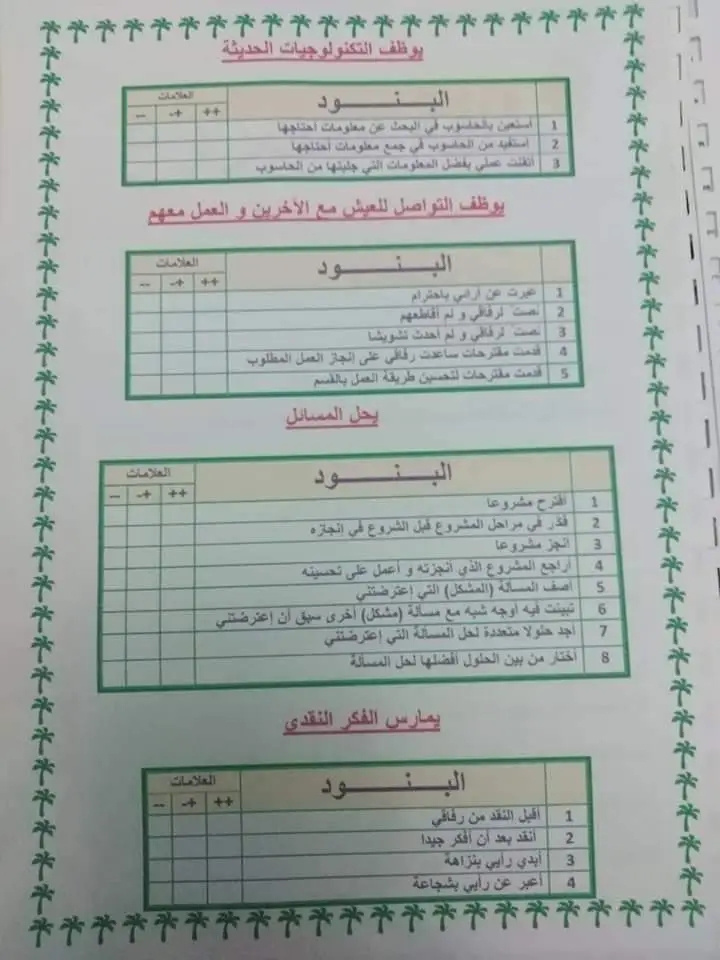 يوظف التكنولوجيات الحديثة
البـنـــــــود العلامات
++ +- --
1 أستعين بالحاسوب في البحث عن معلومات أحتاجها
2 أستفيد من الحاسوب في جمع معلومات أحتاجها
3 أتقنت عملي بفضل المعلومات التي جلبتها من الحاسوب
يوظف التواصل للعيش مع الآخرين و العمل معهم
البـنـــــــود العلامات
++ +- --
1 عبرت عن آرائي باحترام
2 أنصت لرفاقي و لم أقاطعهم
3 أنصت لرفاقي و لم أحدث تشويشا
4 قدمت مقترحات ساعدت رفاقي على إنجاز العمل المطلوب
5 قدمت مقترحات لتحسين طريقة العمل بالقسم
يحل المسائل
البـنـــــــود العلامات
++ +- --
1 أقترح مشروعا
2 فكّر في مراحل المشروع قبل الشروع في إنجازه
3 أنجز مشروعا
4 أراجع المشروع الذي أنجزته و أعمل على تحسينه
5 أصف المسألة (المشكل) التي إعترضتني
6 تبينت فيه أوجه شبه مع مسألة (مشكل) أخرى سبق أن إعترضتني
7 أجد حلولا متعددة لحل المسألة التي إعترضتني
8 أختار من بين الحلول أفضلها لحل المسألة
يمارس الفكر النقدي
البـنـــــــود العلامات
++ +- --
1 أقبل النقد من رفاقي
2 أنقد بعد أن أفكر جيدا
3 أبدي رأيي بنزاهة
4 أعبر عن رأيي بشجاعة